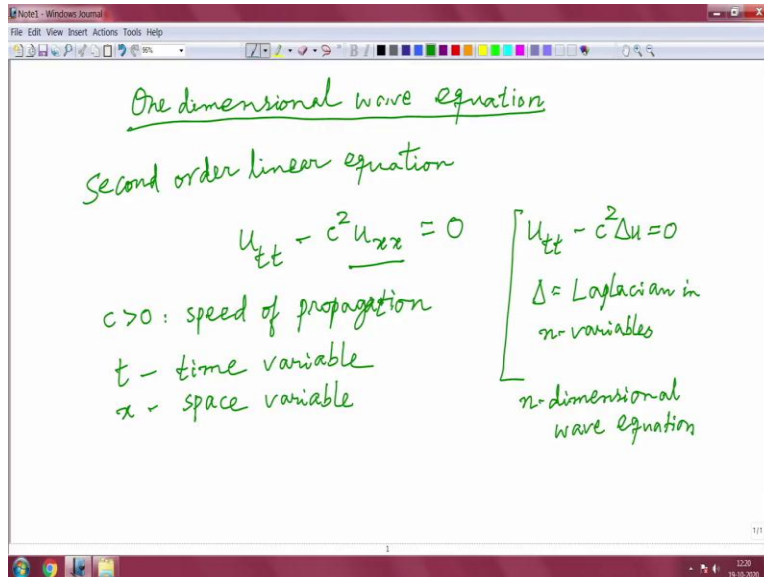 Note1 - Windows Journal
File Edit View Insert Actions Tools Help
95%
One dimensional wave equation
Second order linear equation
u_{tt} - c^2 u_{xx} = 0
c > 0 : speed of propagation
t - time variable
x - space variable
u_{tt} - c^2 Δu = 0
Δ = Laplacian in
n-variables
n-dimensional
wave equation
1/1
1
12:20
19-10-2020